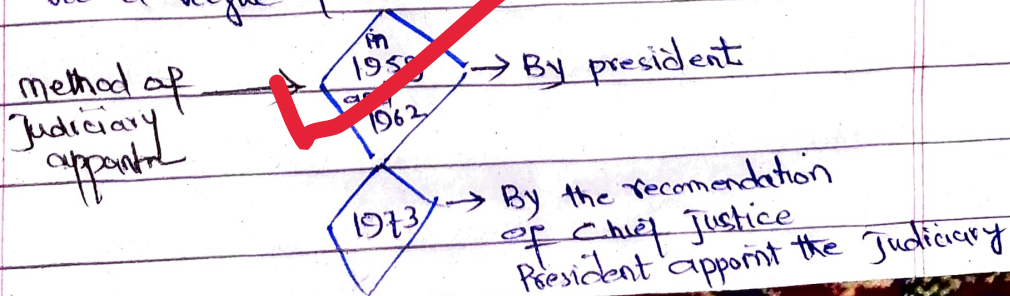 method of
Judiciary
appointn
in
1958
and
1962
→ By president
1973
→ By the recomendation
of Chief Justice
President appoint the Judiciary